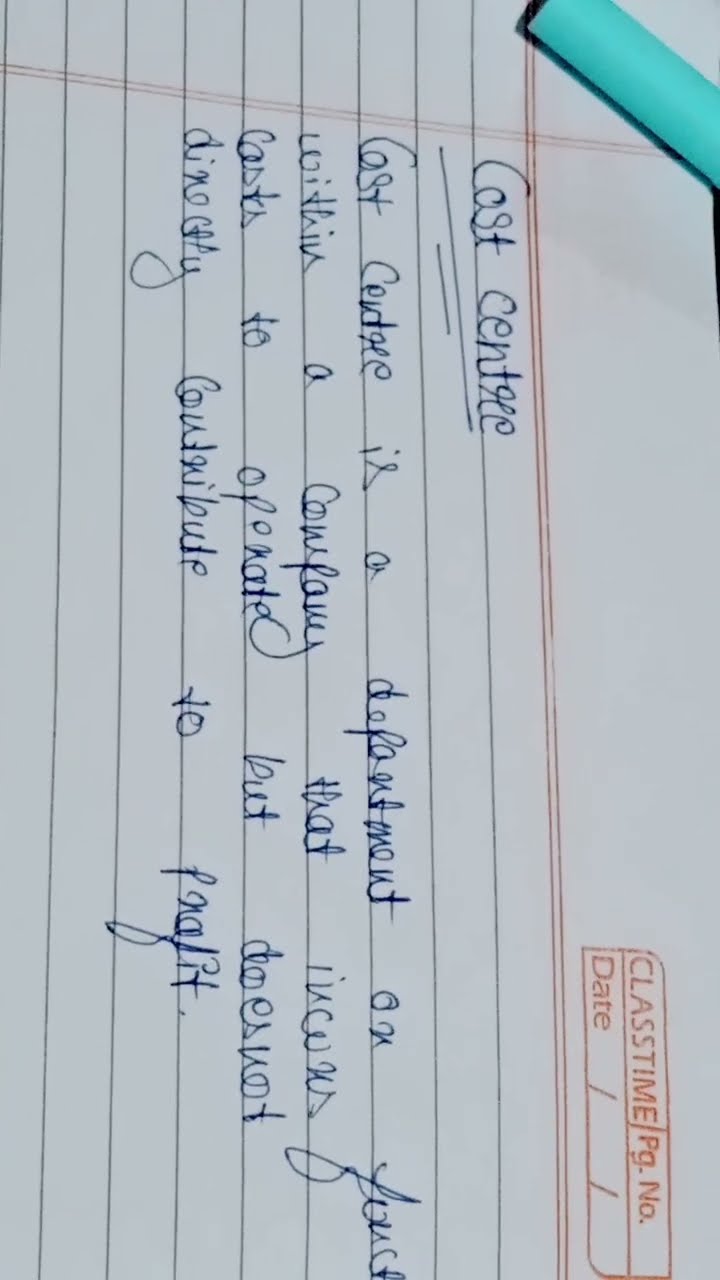 CLASSTIME Pg. No.
Date / /
Cost centre
Cost centre is a department or funct
within a company that incurs
costs to operate but doesnot
directly contribute to profit.